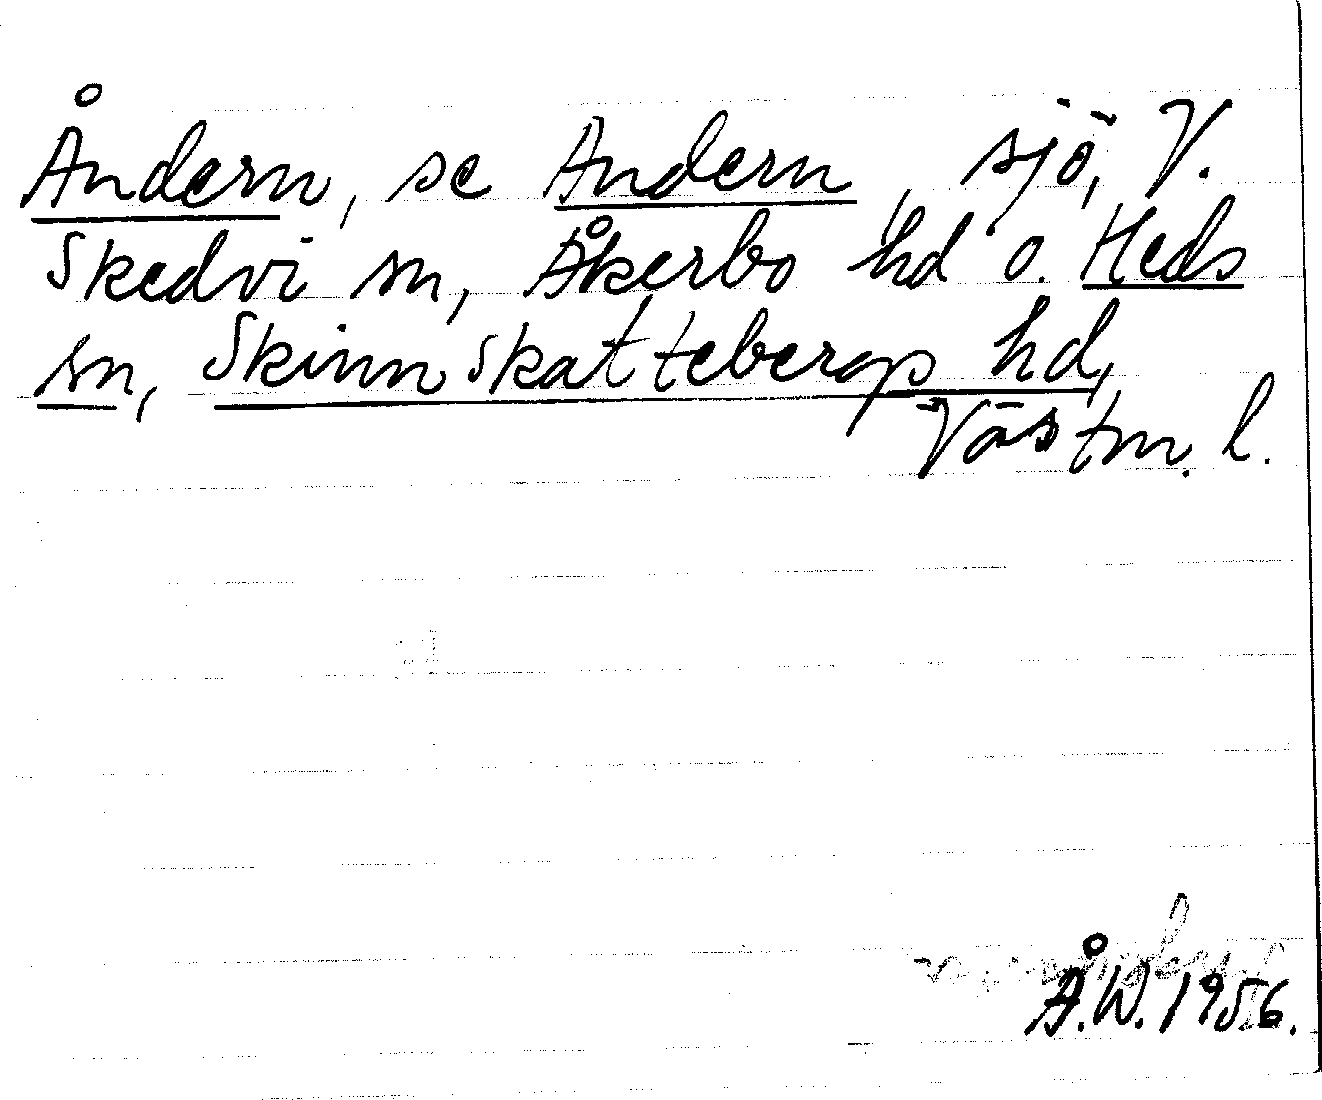 Åndern, se Andern, sjö, V.
Skedvi sn, Åkerbo hd o. Heds
sn, Skinnskattebergs hd,
Västm. l.
Å.W. 1956.